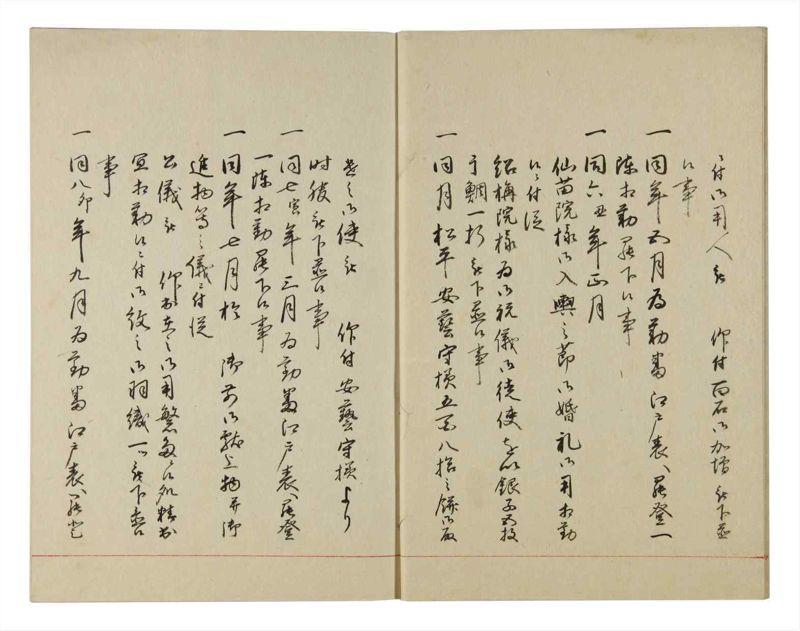 被 仰付百石御加増被下置
候事
一同年五月為勤番江戸表へ罷登一
陳相勤罷下候事
一同六丑年正月
仙苗院様御入輿之節御婚礼御用相勤
候ニ付従
紹構院様為御祝儀御徒使を以銀子五枚
干鯛一折被下置候事
一同月松平安藝守様五百八拾之餅御取
遣之御使被 仰付安藝守様より
時服被下置候事
一同七寅年三月為勤番江戸表へ罷登
一陳相勤罷下候事
一同年七月於 御前御献上物并御
進物等之儀ニ付従
公儀被 仰出其上御用繁多候処精出
宜相勤候ニ付御紋之御羽織一ツ被下置候
事
一同八卯年九月為勤番江戸表へ罷登